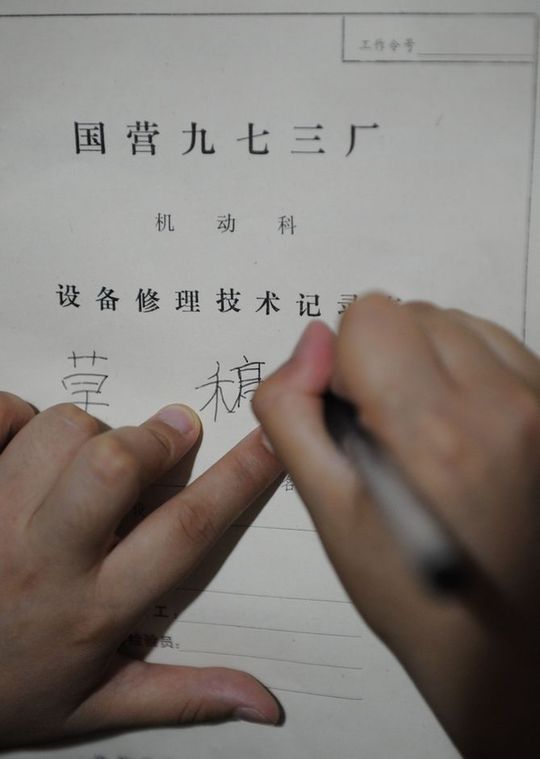 工作令号
国营九七三厂
机动科
设备修理技术记录
草稿
工:
检验员: